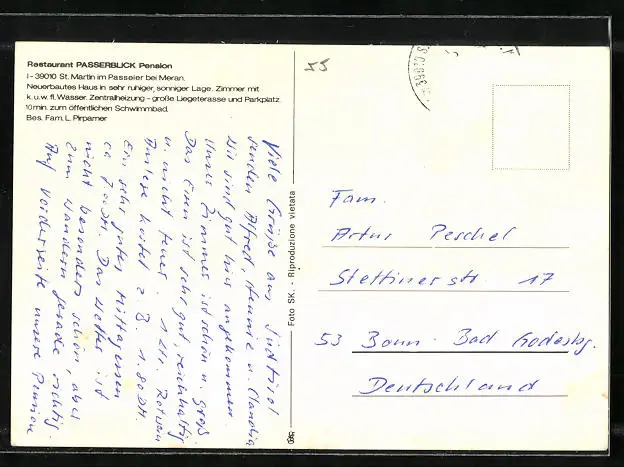 Restaurant PASSERBLICK Pension
I-39010 St. Martin im Passeier bei Meran.
Neuerbautes Haus in sehr ruhiger, sonniger Lage. Zimmer mit
k. u. w. fl. Wasser. Zentralheizung - große Liegeterasse und Parkplatz.
10 min. zum öffentlichen Schwimmbad.
Bes. Fam. L. Pirpamer
Viele Grüße aus Südtirol
senden Alfred, Hennie u. Claudia
Wir sind gut hier angekommen.
Unser Zimmer ist schön u. groß.
Das Essen ist sehr gut, reichhaltig
u. nicht teuer. 1 Ltr. Rotwein
kostet z. B. 1.80 DM.
Ein sehr gutes Mittagessen
ca 7.- DM. Das Wetter ist
nicht besonders schön, aber
zum Wandern gerade richtig.
Auf Vorderseite unsere Pension
Foto SK. - Riproduzione vietata
55
Fam.
Artur Peschel
Stettinerstr. 17
53 Bonn - Bad Godesbg.
Deutschland